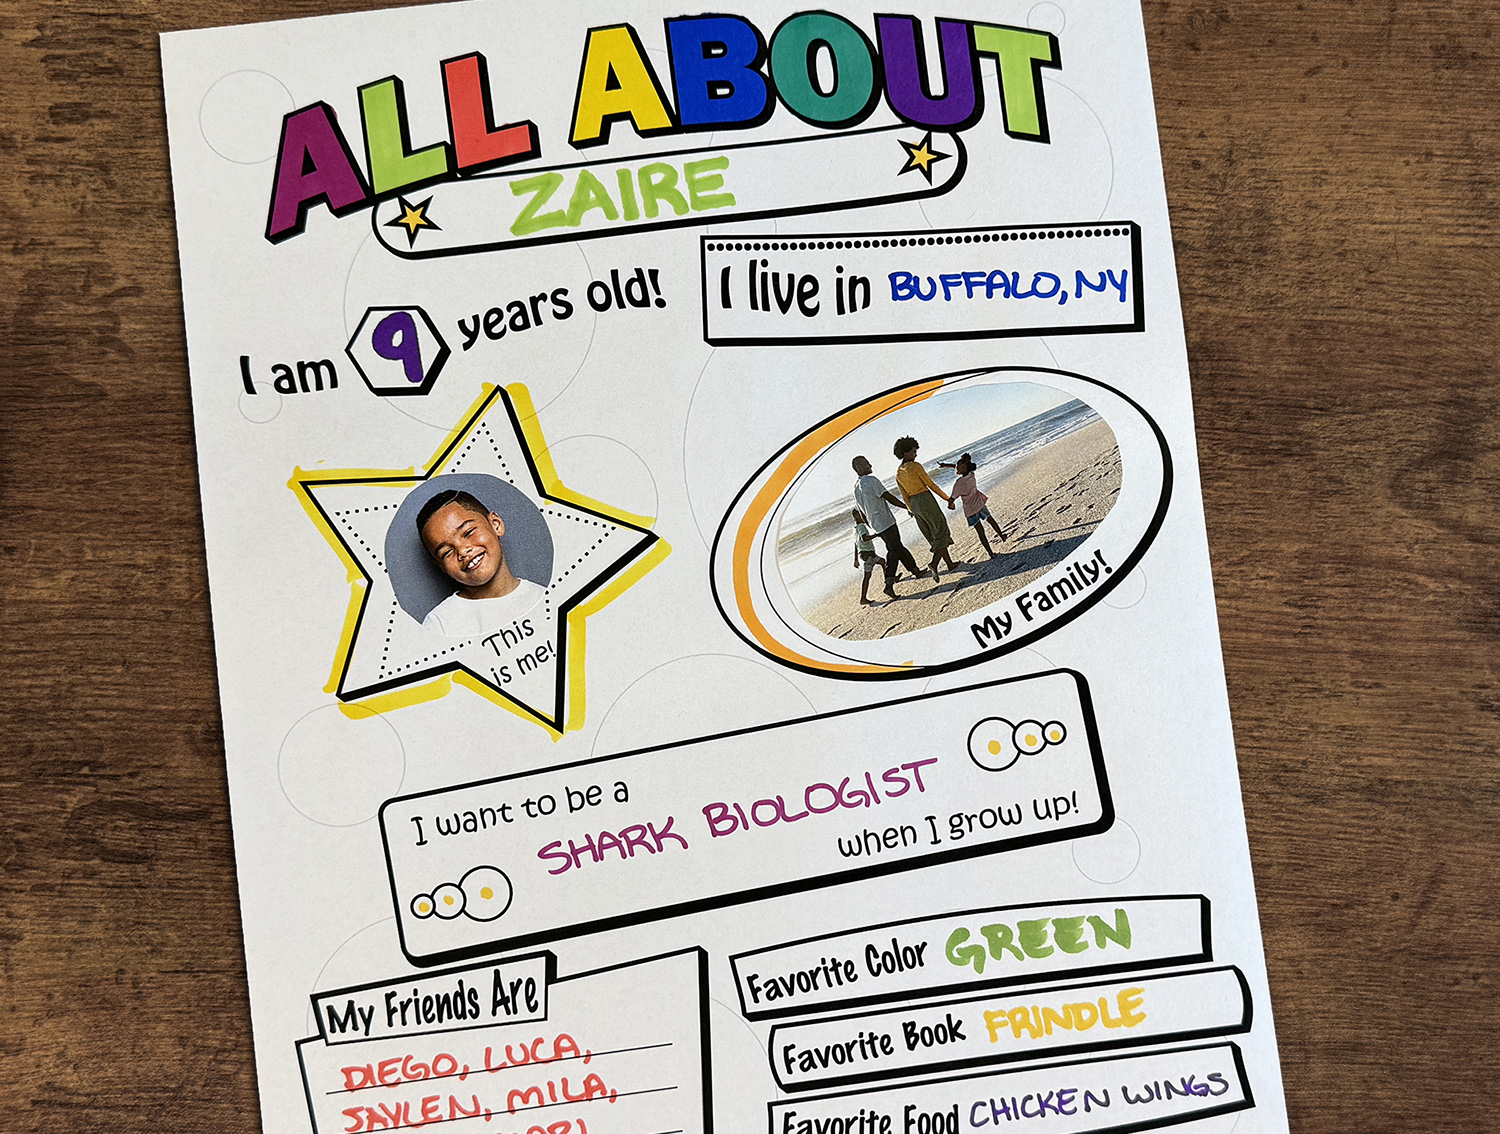 ALL ABOUT
ZAIRE
I am 9 years old!
I live in BUFFALO, NY
This
is me!
My Family!
I want to be a
SHARK BIOLOGIST
when I grow up!
My Friends Are
DIEGO, LUCA,
JAYLEN, MILA,
Favorite Color GREEN
Favorite Book FRINDLE
Favorite Food CHICKEN WINGS